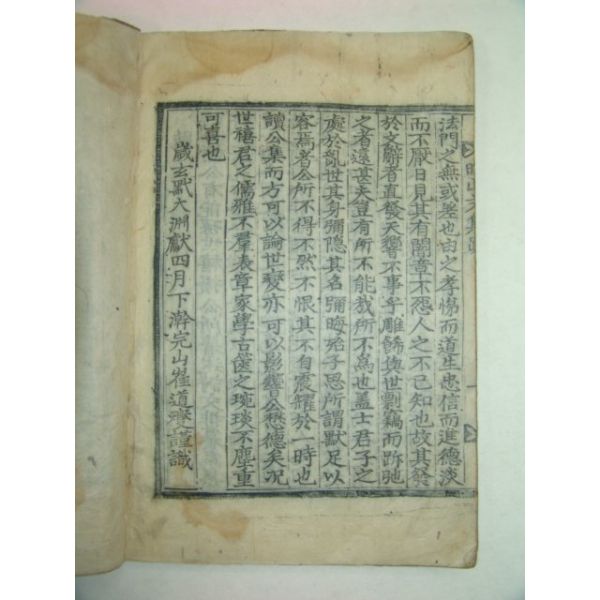 法門之無或差也由之孝悌而道生忠信而進德淡
而不厭日見其有闇章不慍人之不己知也故其發
於文辭者直發天響不事乎雕飾與世剽竊而跅弛
之者遠甚夫豈有所不能哉所不爲也蓋士君子之
處於亂世其身彌隱其名彌晦殆子思所謂默足以
容焉者公所不得不然不恨其不自震耀於一時也
讀公集而方可以論世變亦可以影響公懋德矣况
世禧君之儒雅不羣表章家學古篋之琬琰不塵重
可喜也
歲玄黓大淵獻四月下澣完山崔道燮謹識